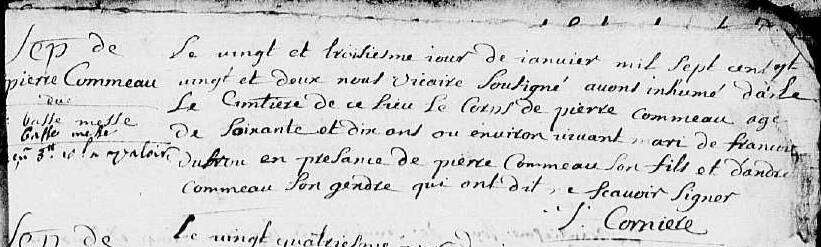 Sep de
pierre Commeau
due
basse messe
basse messe
Le vingt et troisiesme jour de janvier mil sept cens
vingt et deux nous vicaire soussigné avons inhumé dans le
Cimtiere de ce lieu Le Corps de pierre Commeau age
de soixante et dix ans ou environ vivant mari de francoise
en presance de pierre Commeau son fils et d'andre
Commeau son gendre qui ont dit ne scavoir signer
J. Corniere
Sep de
Le vingt quatriesme